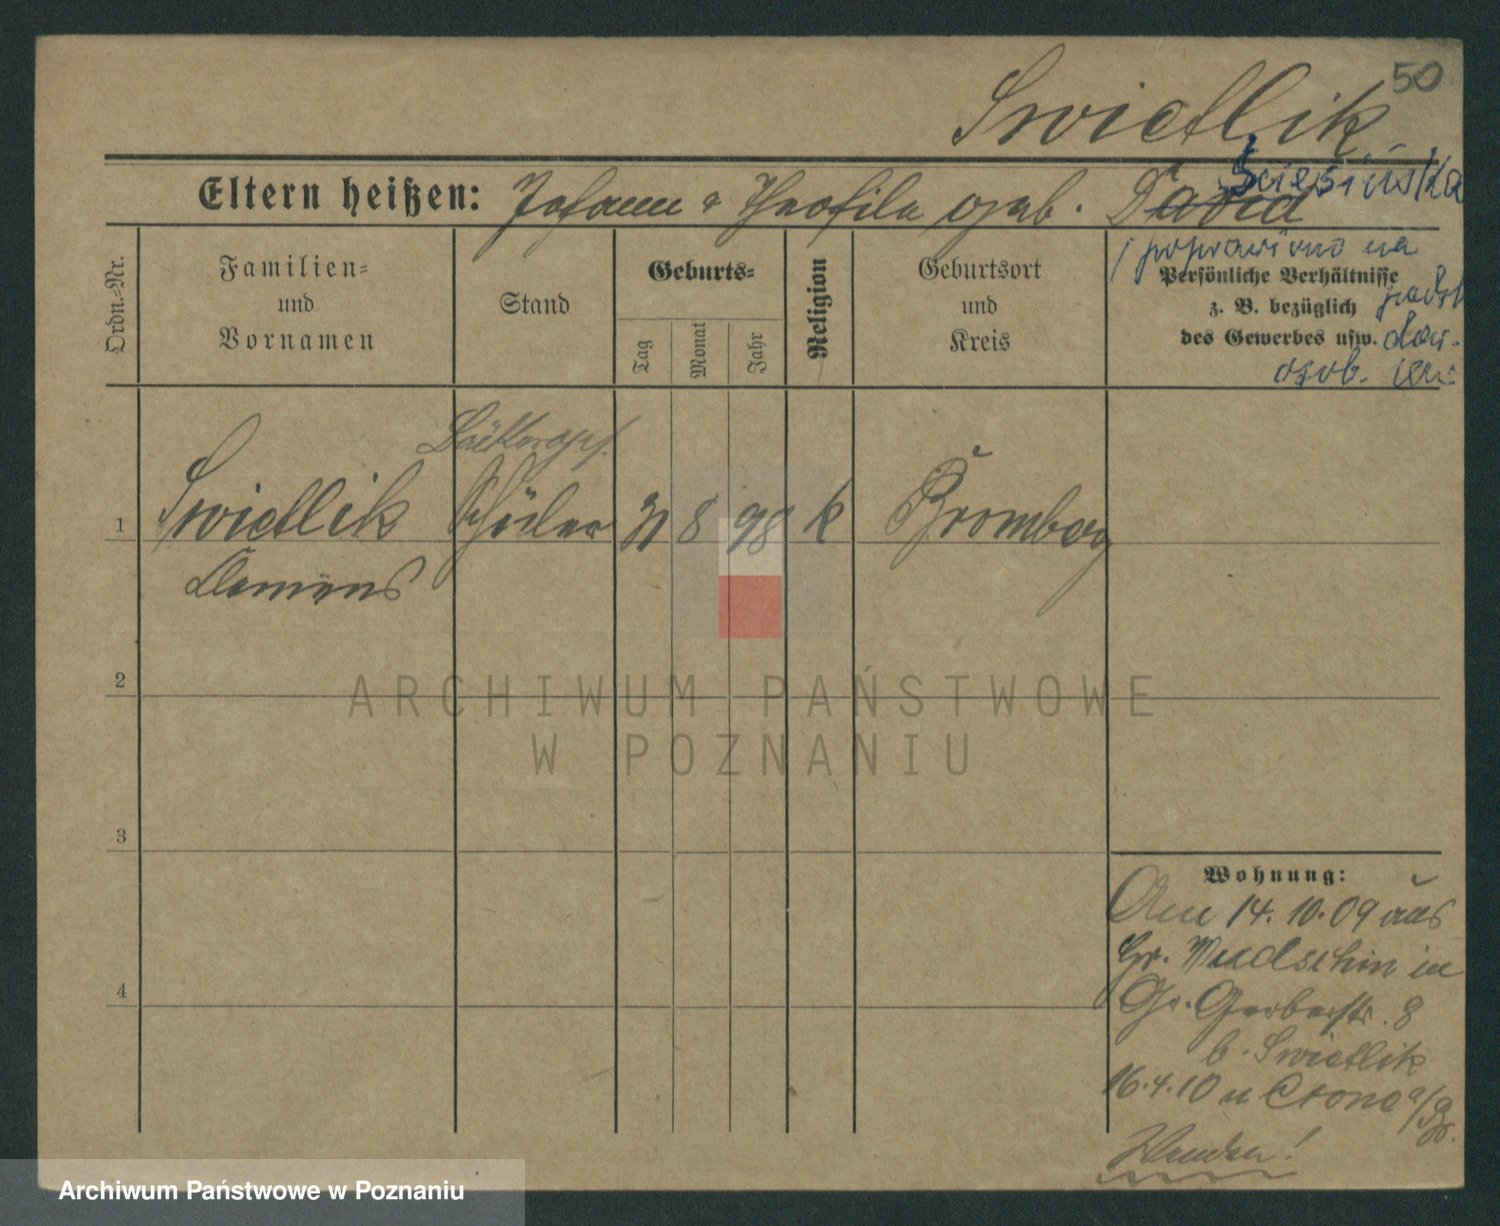 50
Swietlik
Eltern heißen: Johann & Theofila geb. David
Ściesińska
poprawiono na
podst.
dow.
osob.
Ordn.-Nr.
Familien- und Vornamen
Stand
Geburts-
Tag
Monat
Jahr
Religion
Geburtsort und Kreis
Persönliche Verhältnisse
z. B. bezüglich
des Gewerbes usw.
1
Swietlik
Clemens
Schüler
31 8 98 k Bromberg
2
3
4
Wohnung:
Am 14. 10. 09 aus
Gr. Wudschin in
Gr. Gerberstr. 8
b. Swietlik
16.4.10 n Crone a/Br.
Wenden!
ARCHIWUM PAŃSTWOWE
W POZNANIU
Archiwum Państwowe w Poznaniu